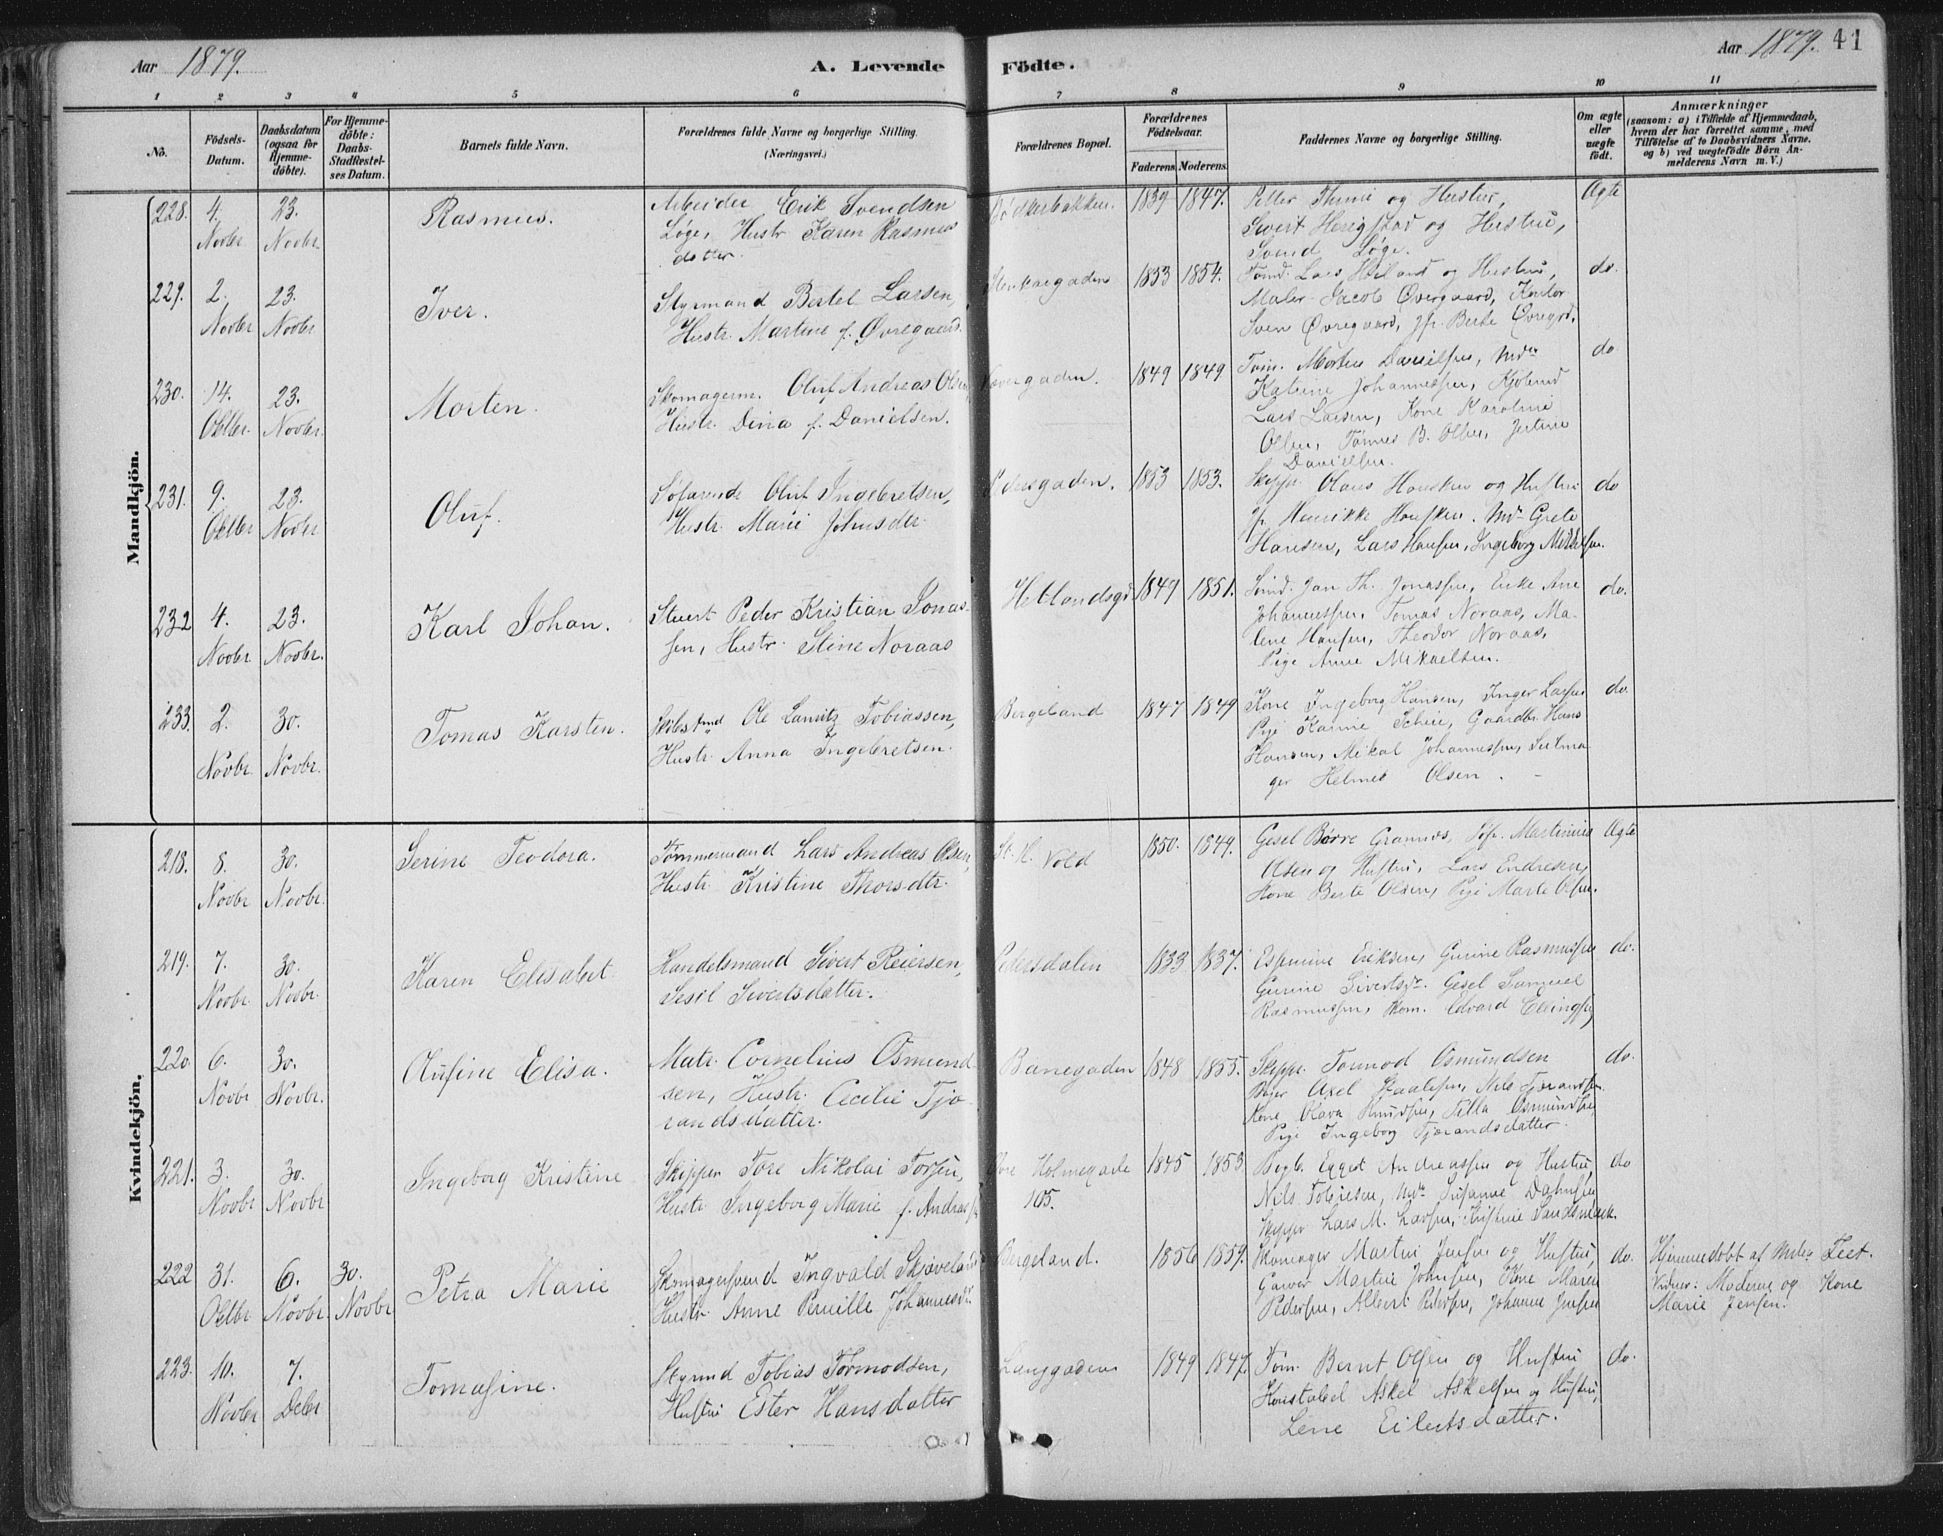 Aar 1879.
A. Levende Födte.
Aar 1879. 41
1 2 3 4 5 6 7 8 9 10 11
No.
Födsels-Datum.
Daabsdatum (ogsaa for Hjemme-döbte).
For Hjemme-döbte: Daabs-Stadfæstel-ses Datum.
Barnets fulde Navn.
Forældrenes fulde Navne og borgerlige Stilling.
(Næringsvei.)
Forældrenes Bopæl.
Forældrenes Födselsaar.
Faderens. Moderens.
Faddernes Navne og borgerlige Stilling.
Om ægte eller uægte födt.
Anmærkninger
(saasom: a) i Tilfælde af Hjemmedaab,
hvem der har forrettet samme, med
Tilföielse af to Daabsvidners Navne.
og b) ved uægtefödte Börn An-
melderens Navn m. V.)
Mandkjön.
228. 4. Novbr 23. Novbr. Rasmus.
Arbeider Erik Svendsen
Løge, Hustr Karen Rasmus
datter.
Bødkerbakken. 1839 1847.
Petter Thime og Hustru,
Sivert Herigstad og Hustru,
Svend Løge.
Ægte
229. 2. Novbr 23. Novbr. Iver.
Styrmand Bertel Larsen,
Hustr. Martine f. Øvregaard.
1853 1854.
Tømd. Lars Høiland og Hustru,
Maler Jacob Øvergaard, Kontor
Sven Øvregaard, Jfr. Berte Øvregrd.
do.
230. 14. Oktbr. 23. Novbr. Morten.
Skomagerm. Oluf Andreas Olsen,
Hustr. Dina f. Danielsen.
1849 1849
Tøm. Morten Danielsen, Mdm
Katrine Johannessen,
Lars Larsen, Kone Karoline
Olsen, Tønnes B. Olsen, Jertine
Danielsen.
do
231. 9. Oktbr 23. Novbr Oluf.
Søfarende Oluf Ingebretsen,
Hustr. Marie Johnsdtr.
Pedersgaden. 1853 1853.
Skippr. Claus Hansken og Hustru
Jfr. Henrikke Hansken. Mdm Grete
Hansen, Lars Hansen, Ingeborg Mikkelsen.
do
232 4. Novbr 23. Novbr. Karl Johan.
Stuert Peder Kristian Jonas-
sen, Hustr. Stine Noraas
Hetlandsgd 1849 1851.
Tømd. Jan Th. Jonassen, Enke Ane
Johannessen, Tomas Noraas, Ma-
lene Hansen, Theodor Noraas,
Pige Anne Mikaelsen.
do.
233. 2. Novbr 30. Novbr. Tomas Karsten.
Skibstmd Ole Lauritz Tobiassen,
Hustr. Anna Ingebretsen.
Bergeland 1847 1849
Kone Ingeborg Hansen, Inger Larsen
Pige Karine Scheie, Gaardbr. Hans
Hansen, Mikal Johannessen, Seilma-
ger Helmik Olsen.
do.
Kvindekjön.
218. 8. Novbr 30. Novbr. Serine Teodora.
Tømmermand Lars Andreas Olsen,
Hustr. Kristine Thorsdtr.
St. H. Vold 1850. 1849.
Gesel Børre Grannes, Martinius
Olsen og Hustru, Lars Endresen,
Kone Berte Olsen, Pige Marte Olsen.
Ægte
219. 7. Novbr 30. Novbr. Karen Elisabet.
Handelsmand Sivert Reiersen,
Sesil Sivertsdatter.
Pedersdalen 1833 1837.
Espenine Eriksen, Gurine Rasmussen
Gurine Sivertsdr. Gesel Samuel
Rasmussen, Skom. Edvard Ellingsen
do.
220 6. Novbr 30. Novbr. Olufine Elisa.
Matr. Cornelius Osmund-
sen, Hustr. Cecilie Tjø-
randsdatter.
Banegaden 1848 1855.
Skippr. Tormod Osmundsen
Axel Staalesen, Nils Tjørandsen
Kone Olava Knudsen, Tilla Osmundsen
Pige Ingeborg Tjørandsdatter.
do.
221. 3. Novbr 30. Novbr Ingeborg Kristine
Skipper Tore Nikolai Torsen,
Hustr Ingeborg Marie f. Andreassen
Øvre Holmegade
105.
1845 1853.
Eggert Andreassen og Hustru,
Nils Tobiesen, Mdm Susanne Dahnsen
Skipper Lars M. Larsen, Kristine Sandsmark.
do
222 31. Oktbr 6. Novbr. 30. Novbr Petra Marie
Skomagersvend Ingvald Skjøveland
Hustr. Anne Pernille Johannesdr.
Bergeland. 1856 1859.
Skomager Martin Jensen og Hustru,
Garver Martin Johnsen, Kone Maren
Pedersen, Albert Pedersen, Johanne Jensen
do.
Hjemmedøbt af Mdm Teet.
Vidner: Moderen og Kone
Marie Jensen.
223. 10. Novbr 7. Debr Tomasine.
Styrmd Tobias Tormodsen,
Hustru Ester Hansdatter
Langgaden 1849 1847.
Tøm. Bernt Olsen og Hustru
Konstabel Askel Askelsen og Hustru,
Lene Eilertsdatter.
do.